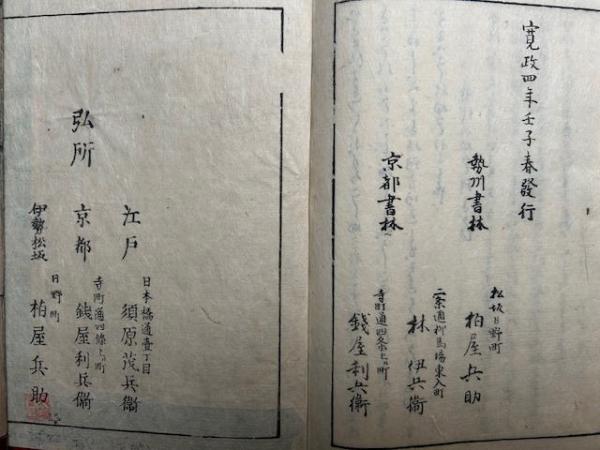 寛政四年壬子春發行
勢州書林
松坂日野町
柏屋兵助
二条通柳馬場東入町
林伊兵衞
京都書林
寺町通四条上ル町
錢屋利兵衞
江戸
日本橋通壹丁目
須原茂兵衞
弘所
京都
寺町通四條上ル町
錢屋利兵衞
伊勢松坂
日野町
柏屋兵助